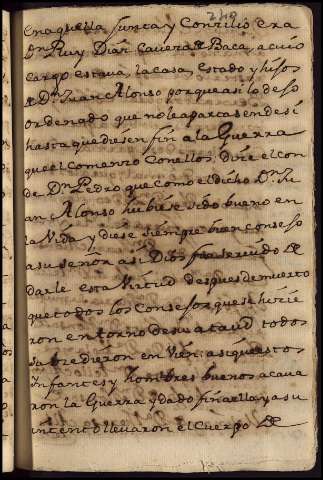 240
en aquella Junta y Concilio era
Dn Ruy Diaz Cavera de Baca, a cuio
cargo estava, la casa, estado y hijos
de Dn Juan Alonso porque asi lo dejo
ordenado que no le apartasen de si
hasta que diesen fin a la Guerra
que el comenzo con ellos, dixe el con
de Dn Pedro que como el dicho Dn Ju
an Alonso hubiese sido bueno en
la Vida y diese siempre buen consejo
a su señor asi Dios fue servido de
darle esta Virtud despues de muerto
que todos los Consejos que se hicie
ron en torno de su ataud todos
salieron en bien: asi que estos
Ynfantes y hombres buenos acava
ron la Guerra y dado fin a ella y a su
intento llevaron el Cuerpo de